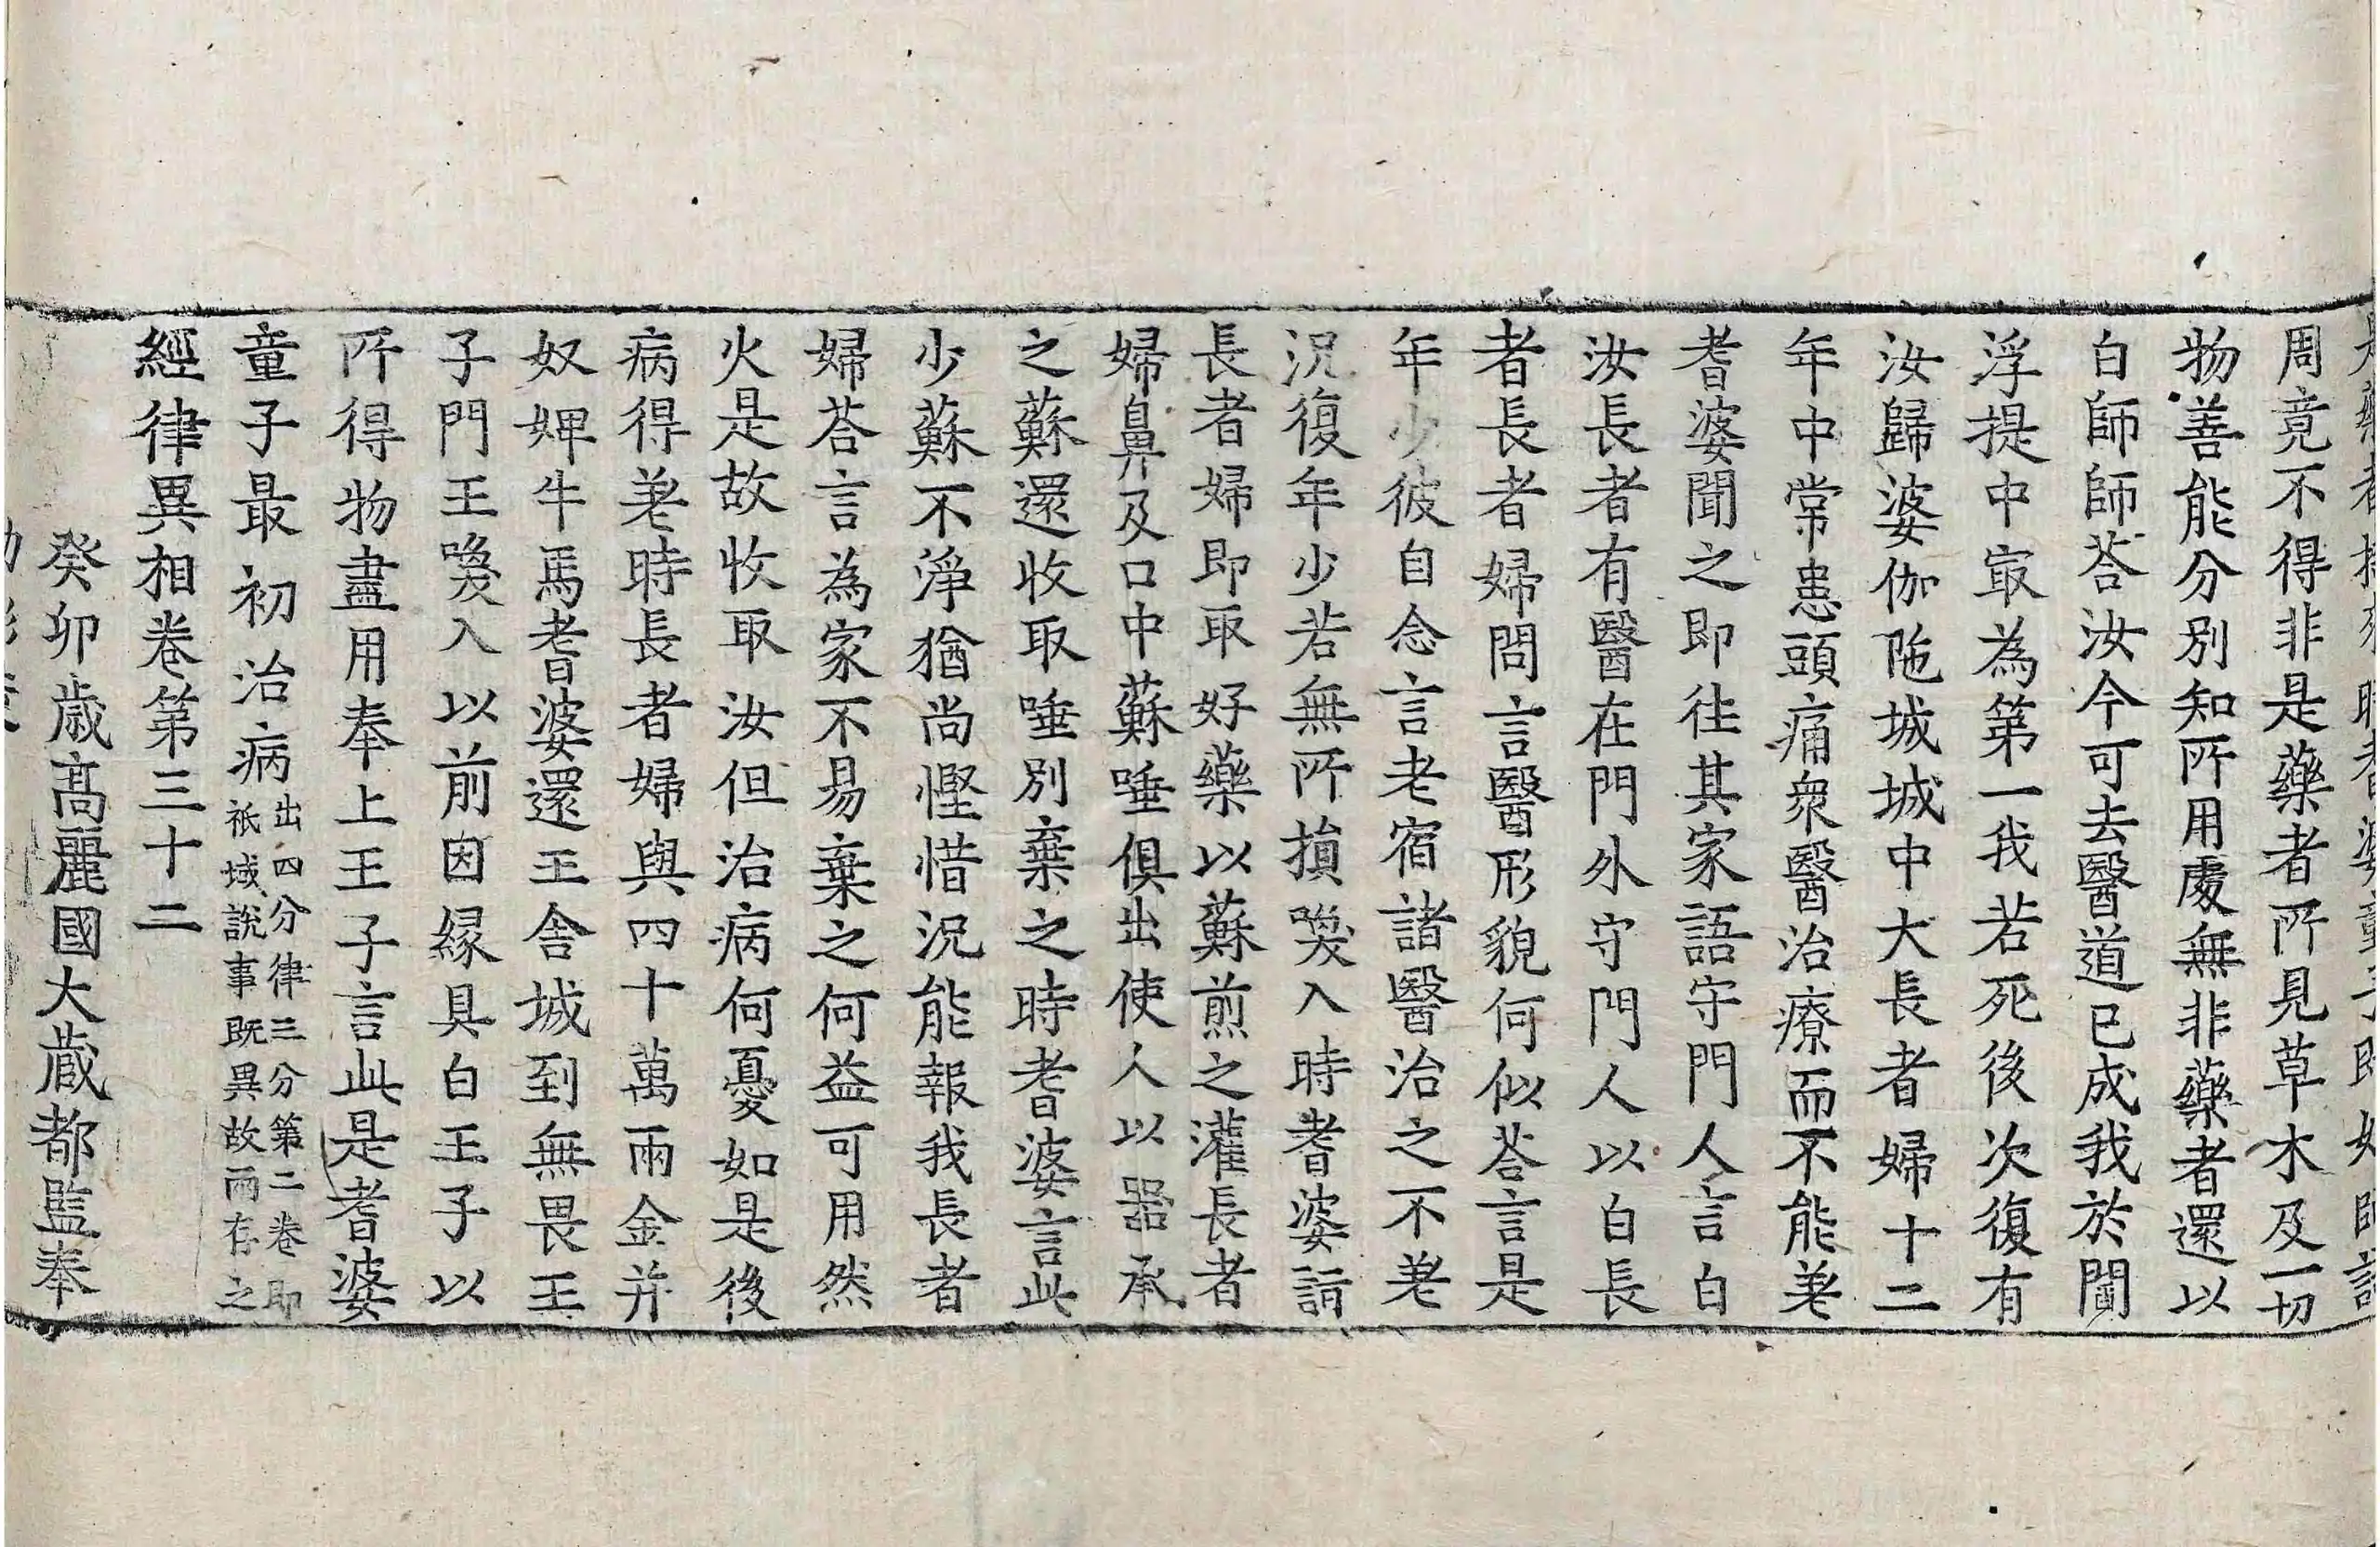 周竟不得非是藥者所見草木及一切
物善能分別知所用處無非藥者還以
白師師荅汝今可去醫道已成我於閻
浮提中冣為第一我若死後次復有
汝歸婆伽陁城城中大長者婦十二
年中常患頭痛衆醫治療而不能差
耆婆聞之即往其家語守門人言白
汝長者有醫在門外守門人以白長
者長者婦問言醫形貌何似荅言是
年少彼自念言老宿諸醫治之不差
況復年少若無所損喚入時耆婆詣
長者婦即取好藥以蘇煎之灌長者
婦鼻及口中蘇唾俱出使人以器承
之蘇還收取唾別棄之時耆婆言此
少蘇不淨猶尚慳惜況能報我長者
婦荅言為家不易棄之何益可用然
火是故收取汝但治病何憂如是後
病得差時長者婦與四十萬兩金并
奴婢牛馬耆婆還王舍城到無畏王
子門王喚入以前因緣具白王子以
所得物盡用奉上王子言此是耆婆
童子最初治病出四分律三分第二卷即
祇域說事既異故兩存之
經律異相卷第三十二
癸卯歲高麗國大藏都監奉